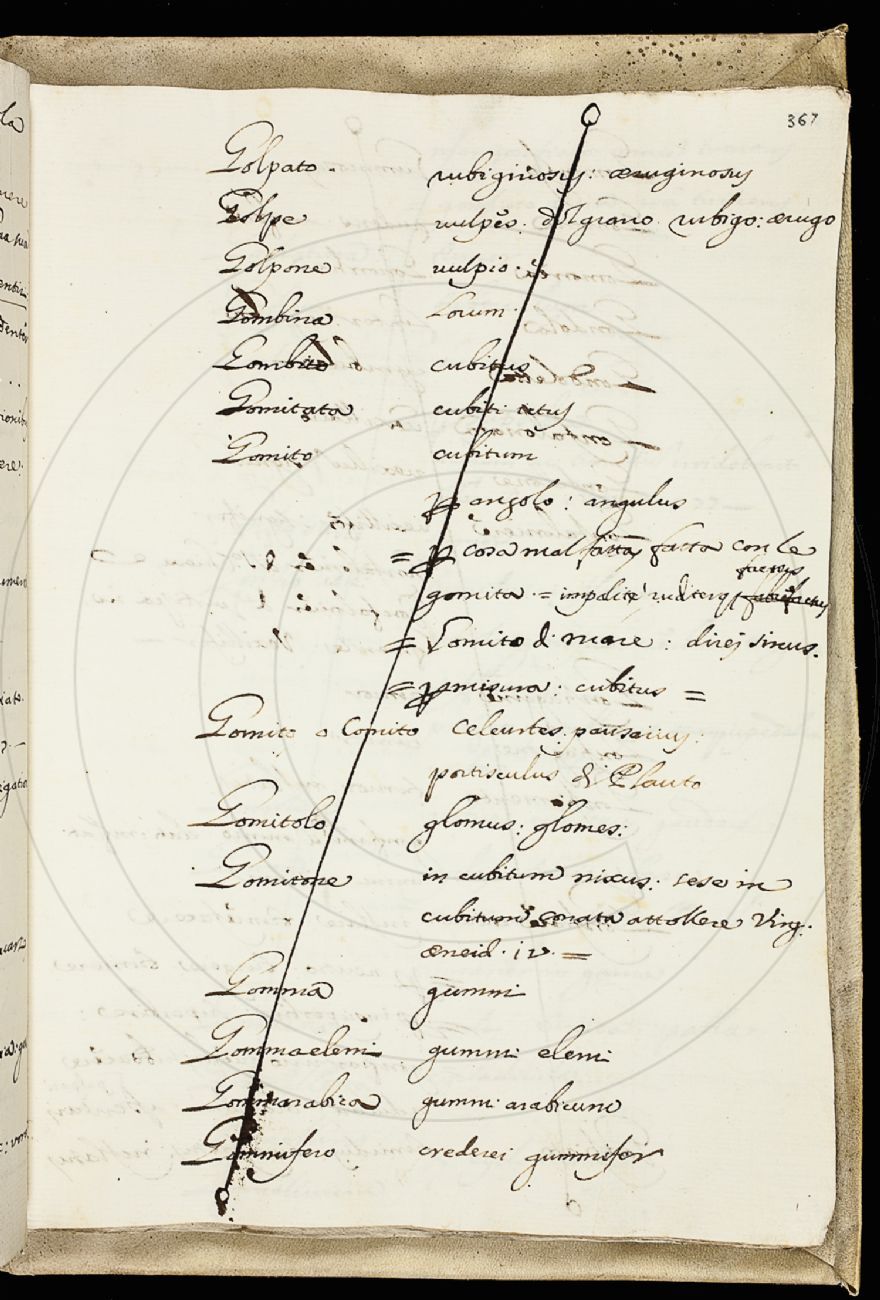 367
Golpato. rubiginosus: æruginosus
Golpe vulpes: del grano rubigo: ærugo
Golpone vulpio:
Gombina Lorum
Gombito cubitus
Gomitata cubiti ictus
Gomito cubitum
p angolo: angulus
= p cosa mal fatta, fatta con le
factus
gomita = impolite, ruditerq
= Gomito di mare: direi sinus.
= p misura: cubitus =
Gomito o Comito Celeustes pausarius:
portisculus di Plauto
Gomitolo glomus: glomes:
Gomitone in cubitum nixus: sese in
cubitum conata attollere Virg.
æneid. iv. =
Gomma gummi
Gommaelemi gummi elemi
Gommarabica gummi arabicum
Gommifero crederei gummifer